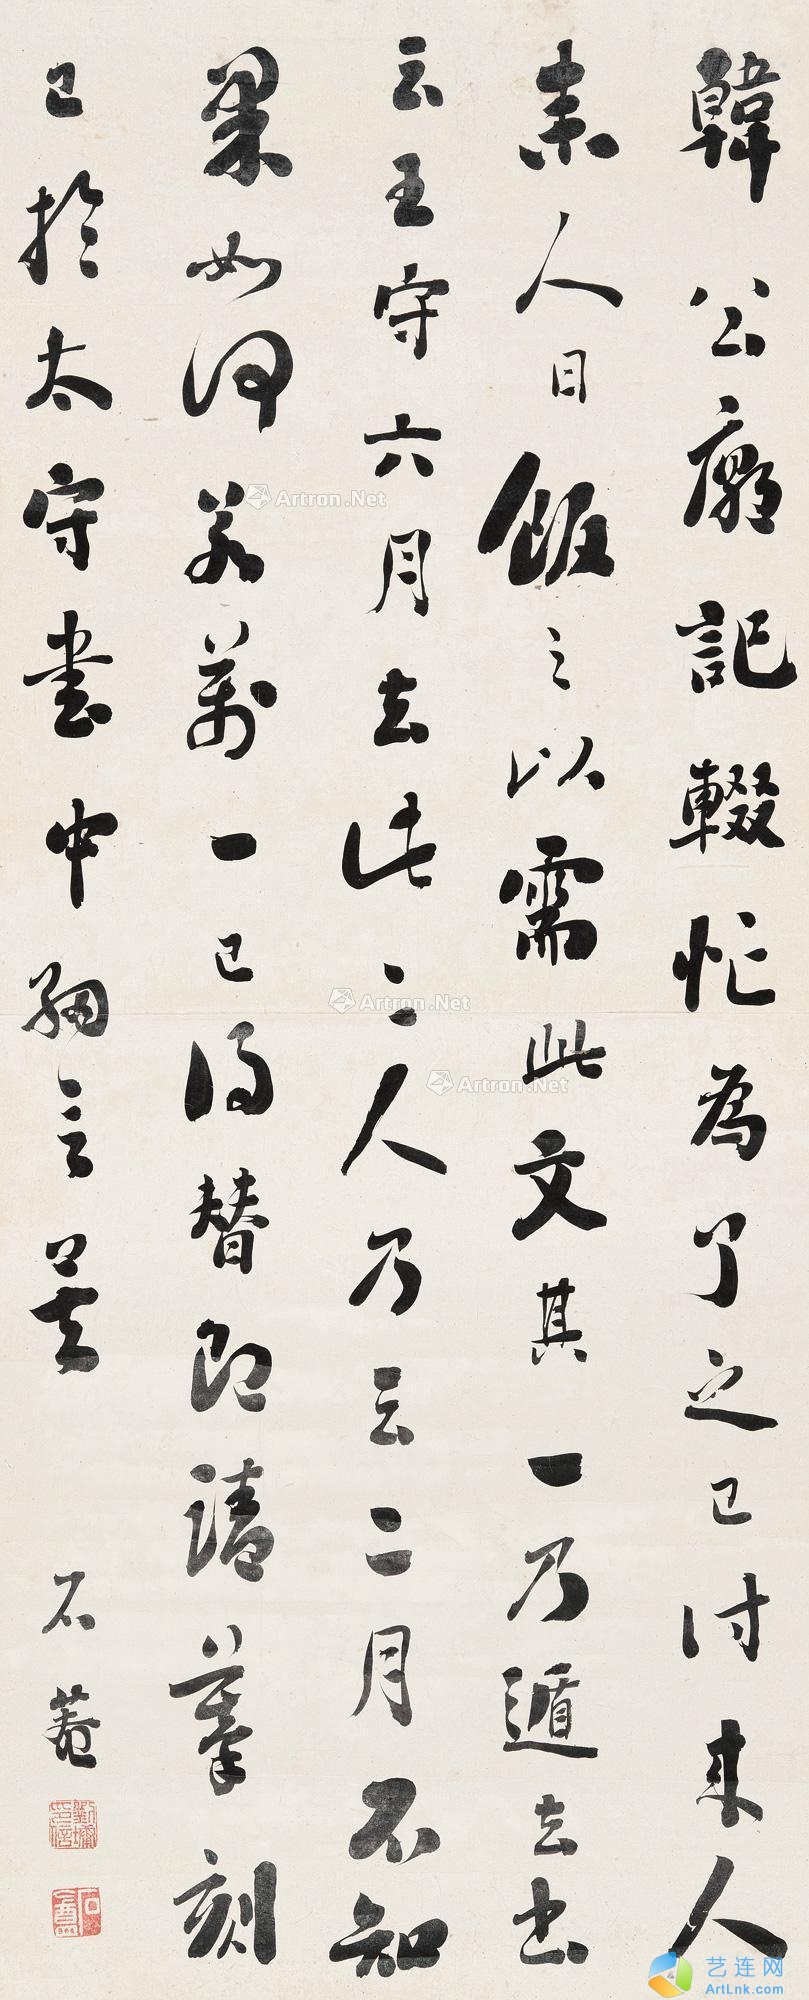 韓公廟記輟忙為了之已付來人
来人日飯之以需此文其一乃遁去出
云王守六月去此二人乃云二月不知
果如何若萬一已得替即請摹刻
已於太守書中細言矣
石菴
劉墉
石
Artron.Net
Artron.Net
Artron.Net
艺连网
ArtLnk.com